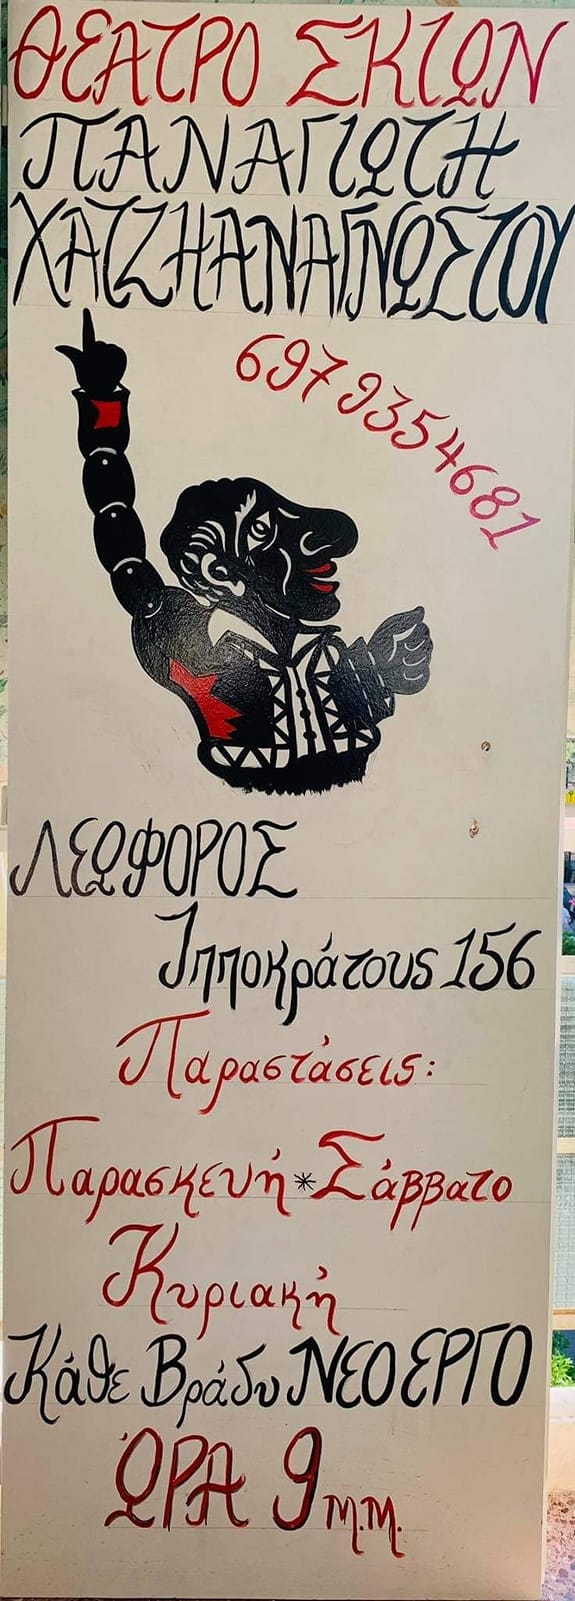 ΘΕΑΤΡΟ ΣΚΙΩΝ
ΠΑΝΑΓΙΩΤΗ
ΧΑΤΖΗΑΝΑΓΝΩΣΤΟΥ
6979354681
ΛΕΩΦΟΡΟΣ
Ιπποκράτους 156
Παραστάσεις:
Παρασκευή * Σάββατο
Κυριακή
Κάθε Βράδυ ΝΕΟ ΕΡΓΟ
ΩΡΑ 9 μ.μ.